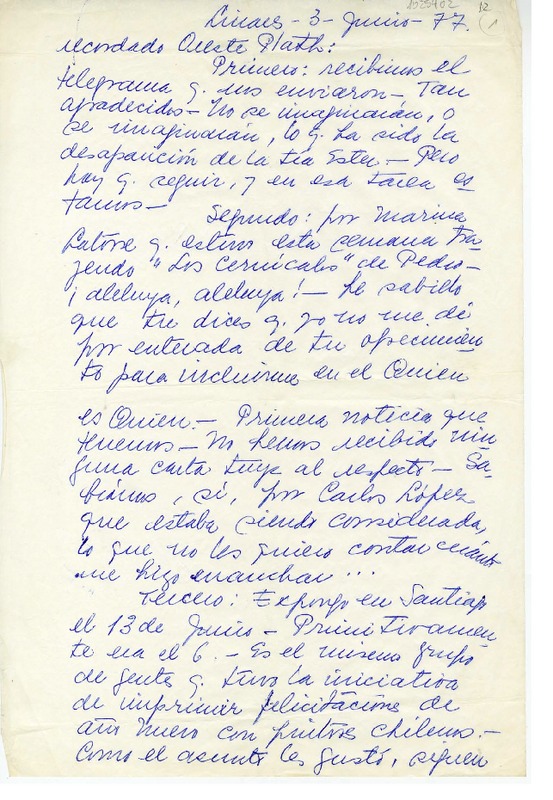 1025702 12
1
Linares - 3 - Junio - 77.
recordado Oreste Plath:
Primero: recibimos el
telegrama q. nos enviaron - Tan
agradecidos - No se imaginarán, o
se imaginarán, lo q. ha sido la
desaparición de la tía Ester. - Pero
hay q. seguir, y en esa tarea es
tamos -
Segundo: por Marina
Latorre q. estuvo esta semana tra
yendo "Los Cernícalos" de Pedro -
¡aleluya, aleluya! - he sabido
que tu dices q. yo no me dí
por enterada de tu ofrecimien
to para incluirme en el Quien
es Quien. - Primera noticia que
tenemos - No hemos recibido nin
guna carta tuya al respecto - Sa-
bíamos, sí, por Carlos López
que estaba siendo considerada,
lo que no les quiero contar cuánto
me hizo ensanchar...
Tercero: Expongo en Santiago
el 13 de Junio - Primitivamen
te era el 6. - Es el mismo grupo
de gente q. tuvo la iniciativa
de imprimir felicitaciones de
año nuevo con pintores chilenos. -
Como el asunto les gustó, siguen